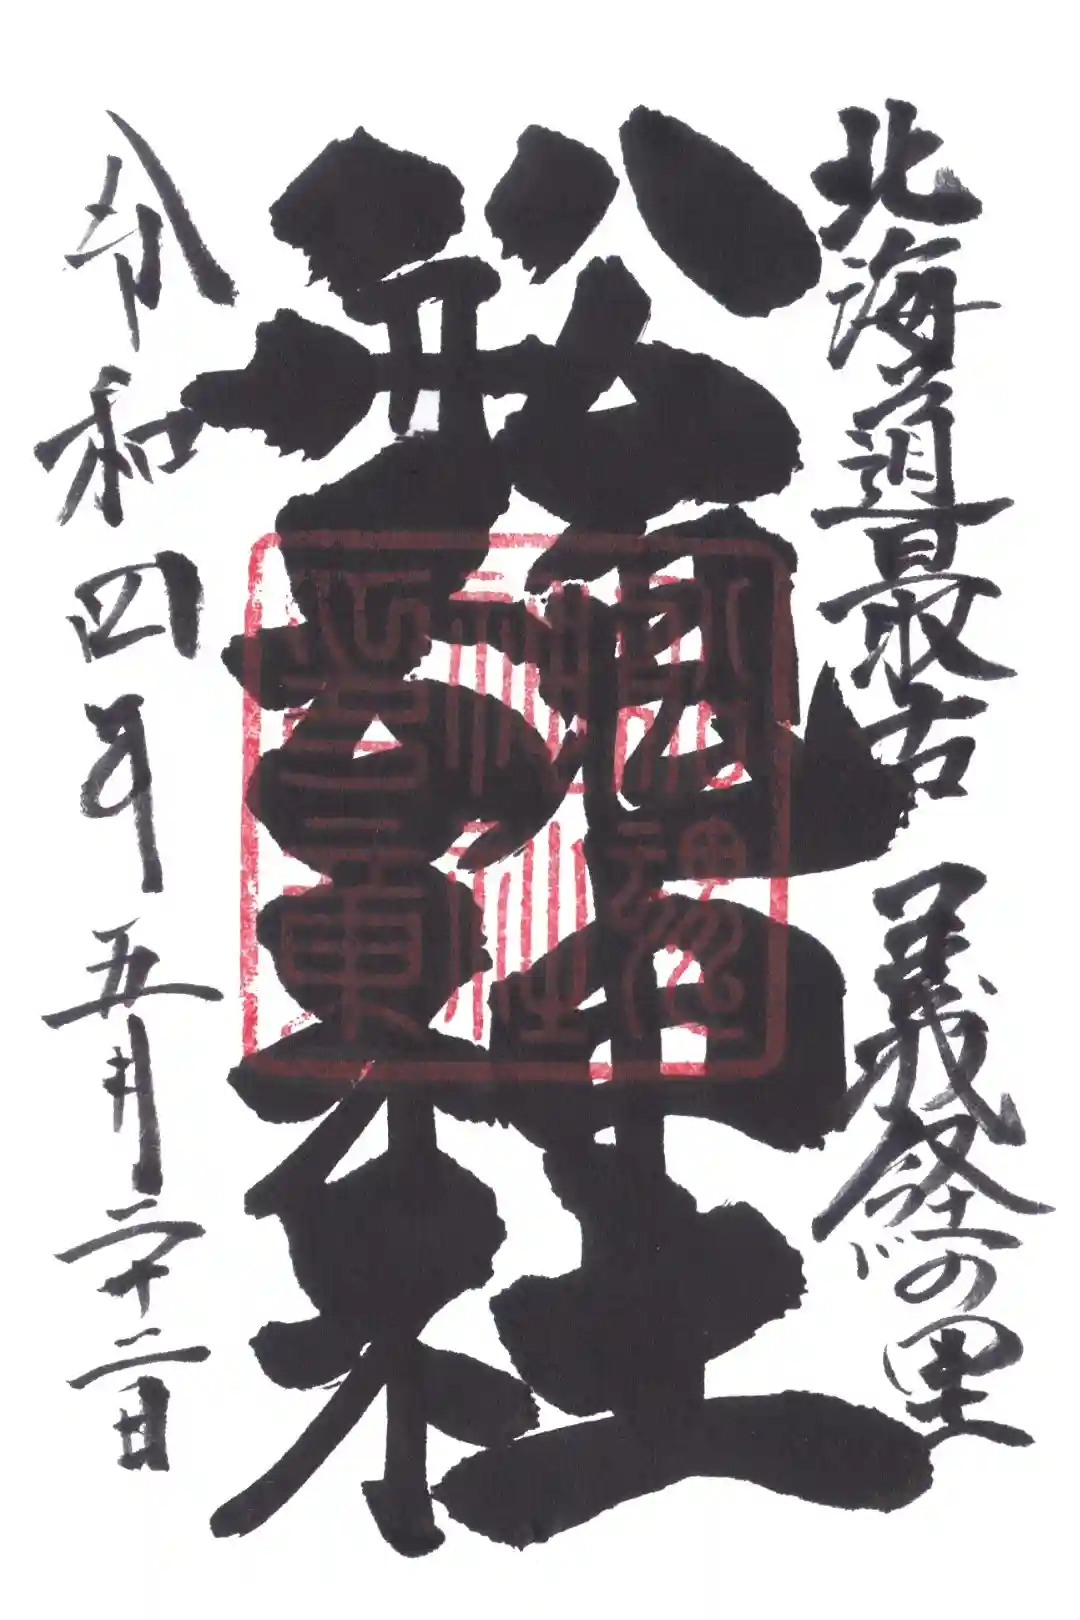 北海道最古 義経の里
舩魂神社
令和四年五月二十二日